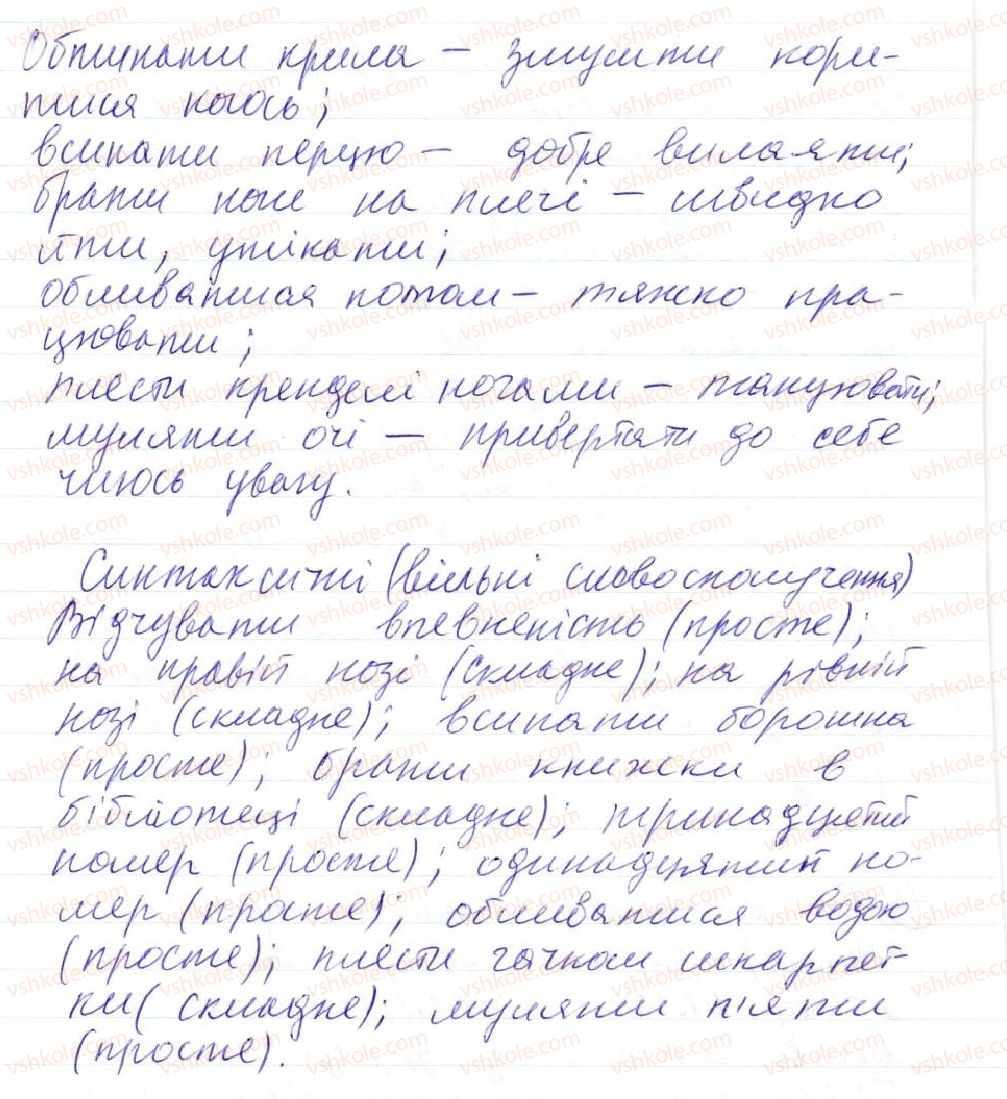 Обтинати крила – змусити кори-
тися комусь;
всипати перцю – добре вилаяти;
брати ноги на плечі – швидко
йти, утікати;
обливатися потом – тяжко пра-
цювати;
плести кренделі ногами – танцювати;
муляти очі – привертати до себе
чиюсь увагу.
Синтаксичні (вільні словосполучення)
Відчувати впевненість (просте);
на правій нозі (складне); на рівній
нозі (складне); всипати борошна
(просте); брати книжки в
бібліотеці (складне); тринадцятий
номер (просте); одинадцятий но-
мер (просте); обливатися водою
(просте); плести гачком шкарпет-
ки (складне); муляти п'яти
(просте).